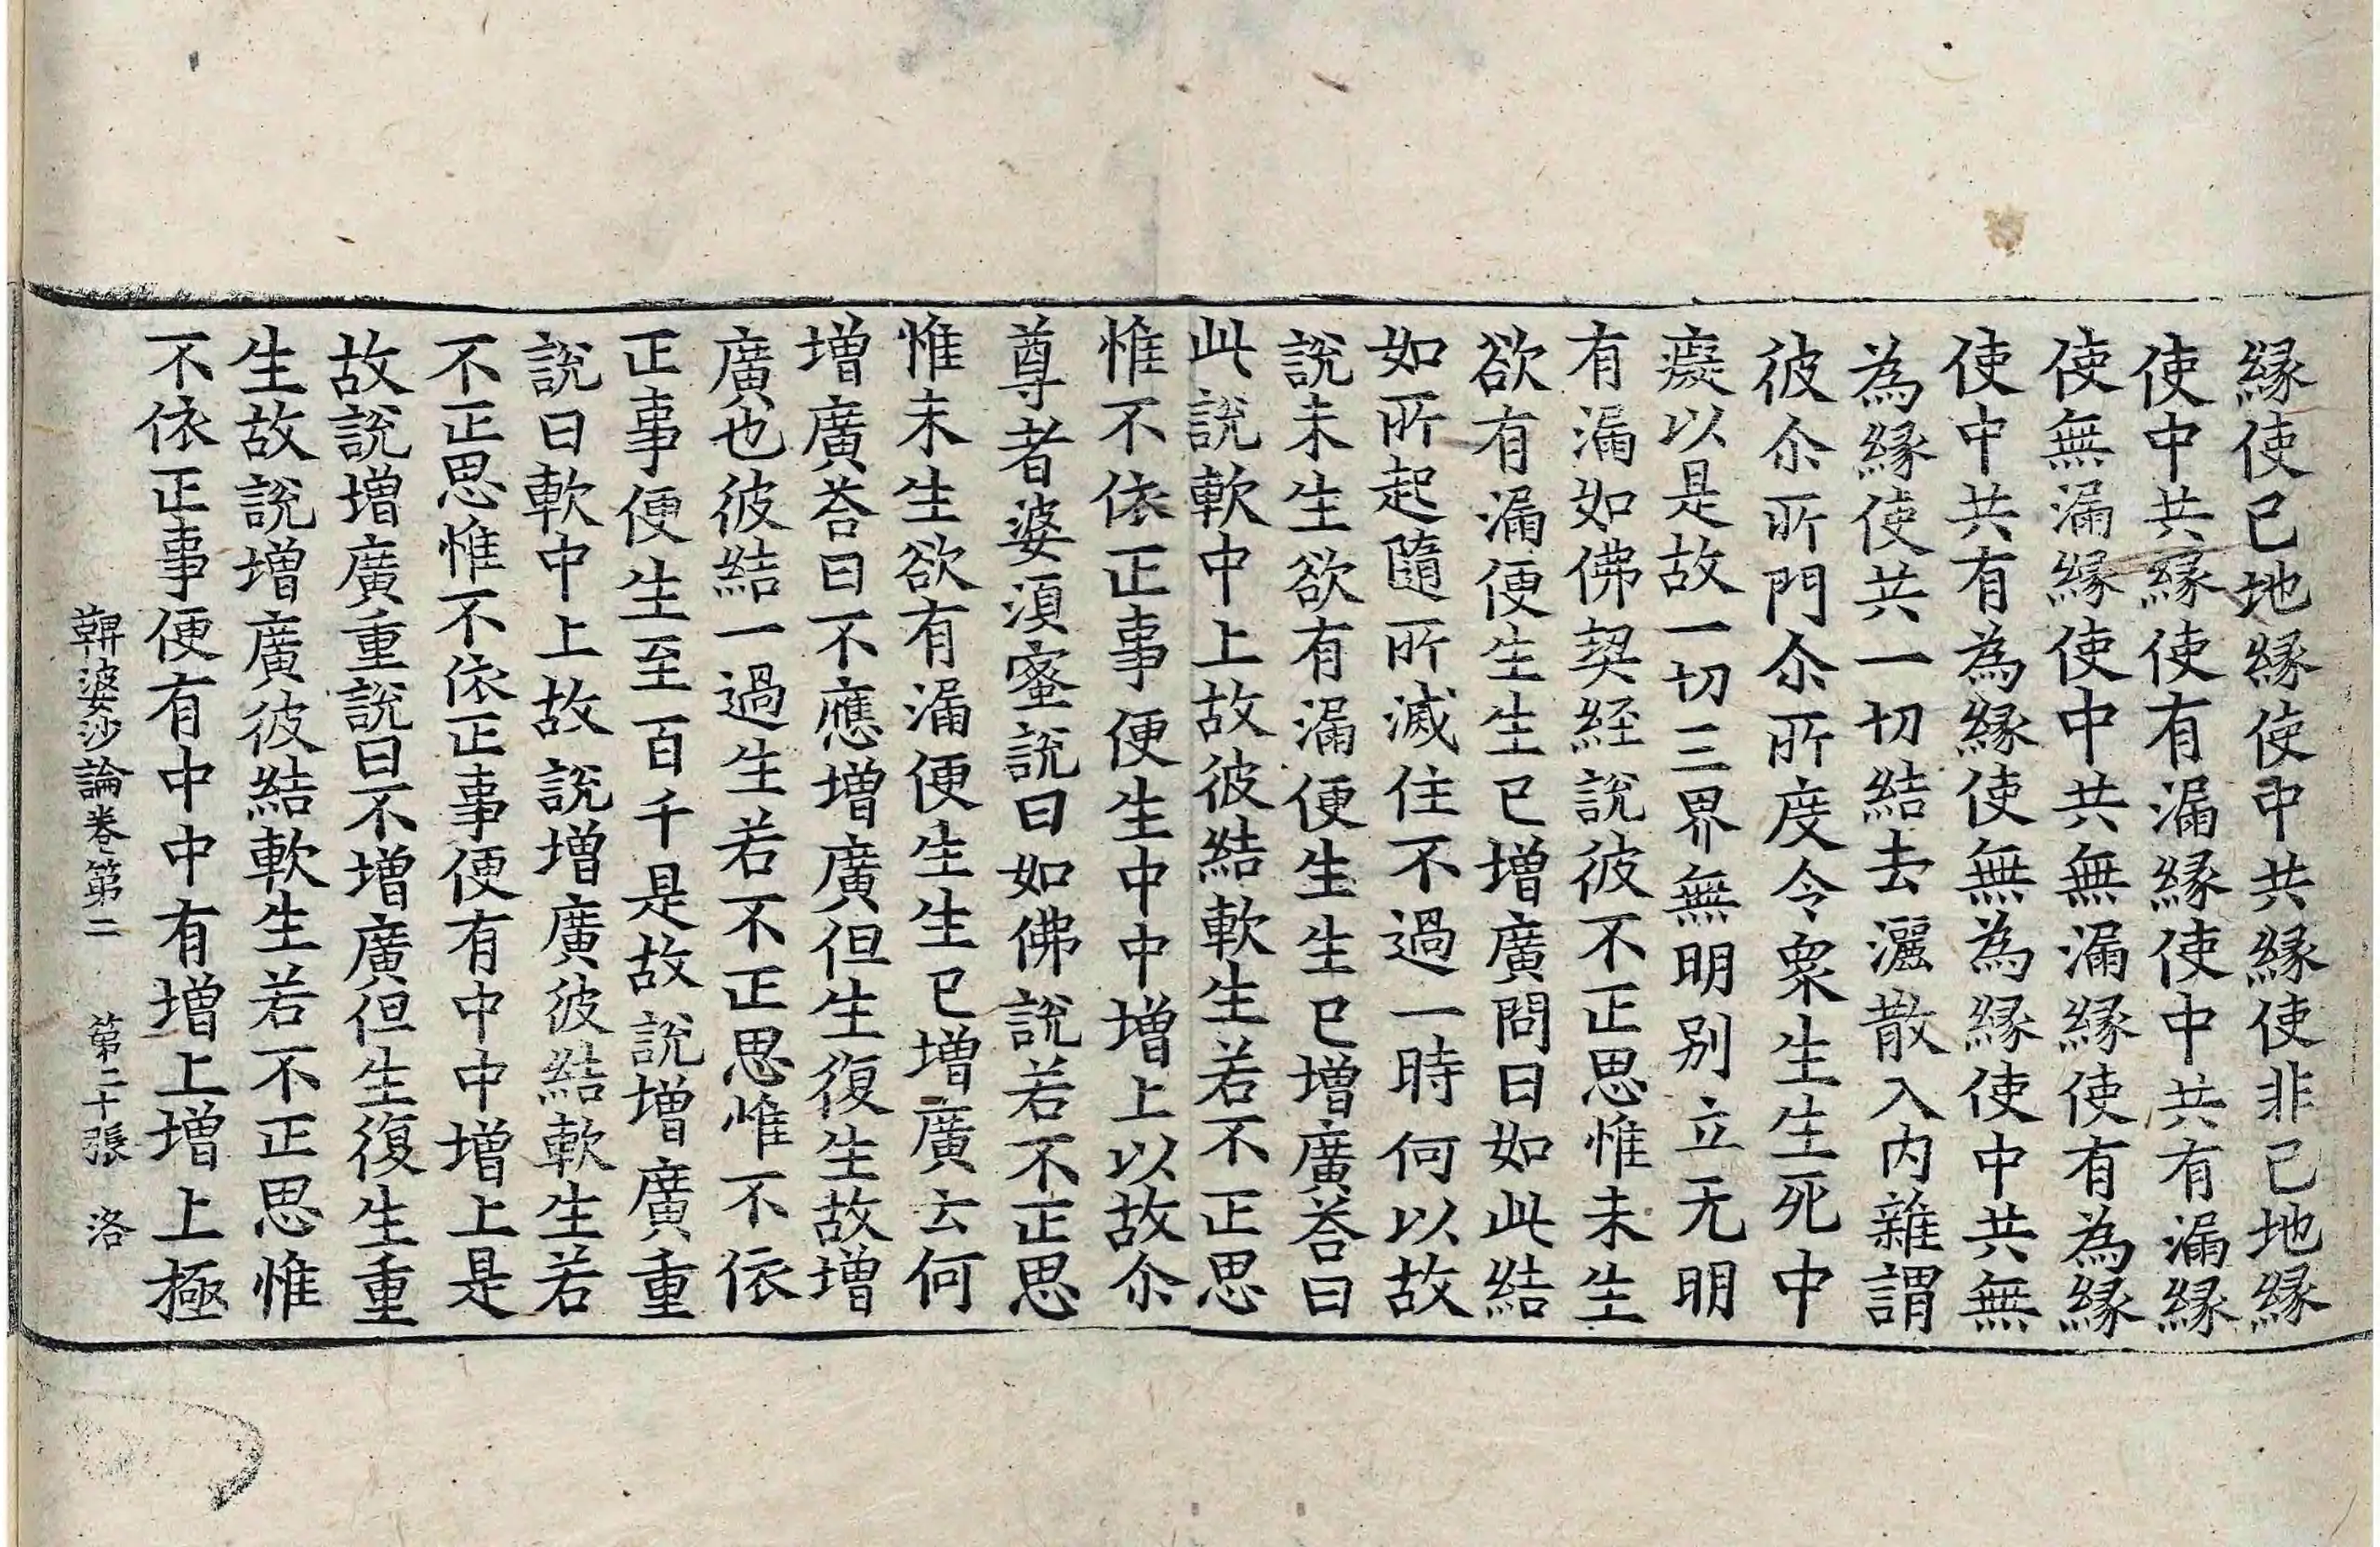 縁使已地縁使中共縁使非已地縁
使中共縁使有漏縁使中共有漏縁
使無漏縁使中共無漏縁使有為縁
使中共有為縁使無為縁使中共無
為縁使共一切結去灑散入内雜謂
彼尒所門尒所度令衆生生死中
癡以是故一切三界無明别立无明
有漏如佛契経說彼不正思惟未生
欲有漏便生生已增廣問曰如此結
如所起隨所滅住不過一時何以故
說未生欲有漏便生生已增廣荅曰
此說軟中上故彼結軟生若不正思
惟不依正事便生中中增上以故尒
尊者婆湏蜜說曰如佛說若不正思
惟未生欲有漏便生生已增廣云何
增廣荅曰不應增廣但生復生故增
廣也彼結一過生若不正思惟不依
正事便生至百千是故說增廣重
說曰軟中上故說增廣彼結軟生若
不正思惟不依正事便有中中增上是
故說增廣重說曰不增廣但生復生重
生故說增廣彼結軟生若不正思惟
不依正事便有中中有增上增上極
鞞婆沙論卷第二　第二十張　洛